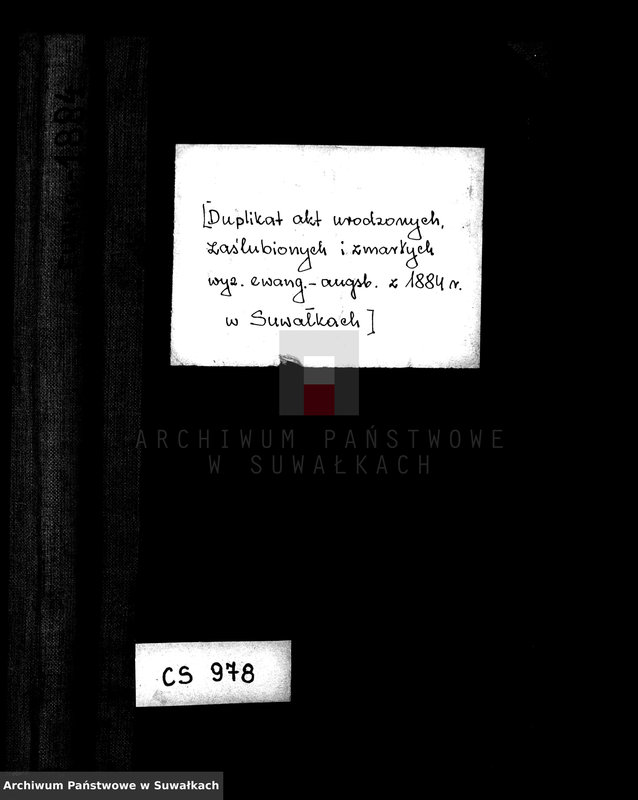 1884
[Duplikat akt urodzonych,
zaślubionych i zmarłych
wyz. ewang.-augsb. z 1884 r.
w Suwałkach]
ARCHIWUM PAŃSTWOWE
W SUWAŁKACH
CS 978
Archiwum Państwowe w Suwałkach